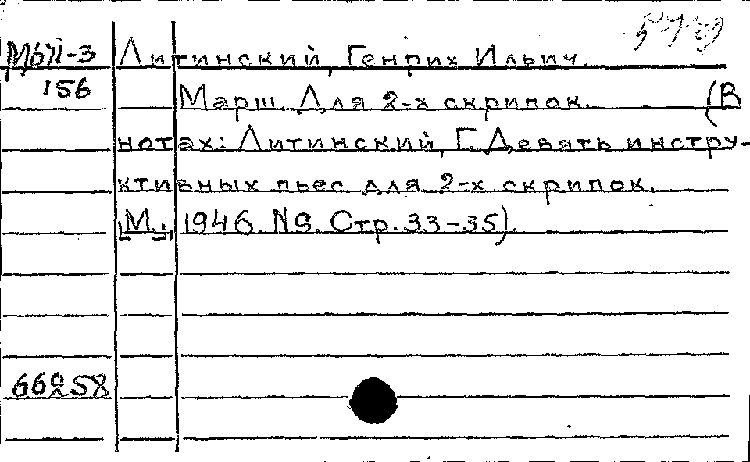 М671-3 Литинский, Генрих Ильич.
156 Марш. Для 2-х скрипок. (В
нотах: Литинский, Г. Девять инстру-
ктивных пьес для 2-х скрипок.
[М.], 1946. №9. Стр. 33-35).
66258